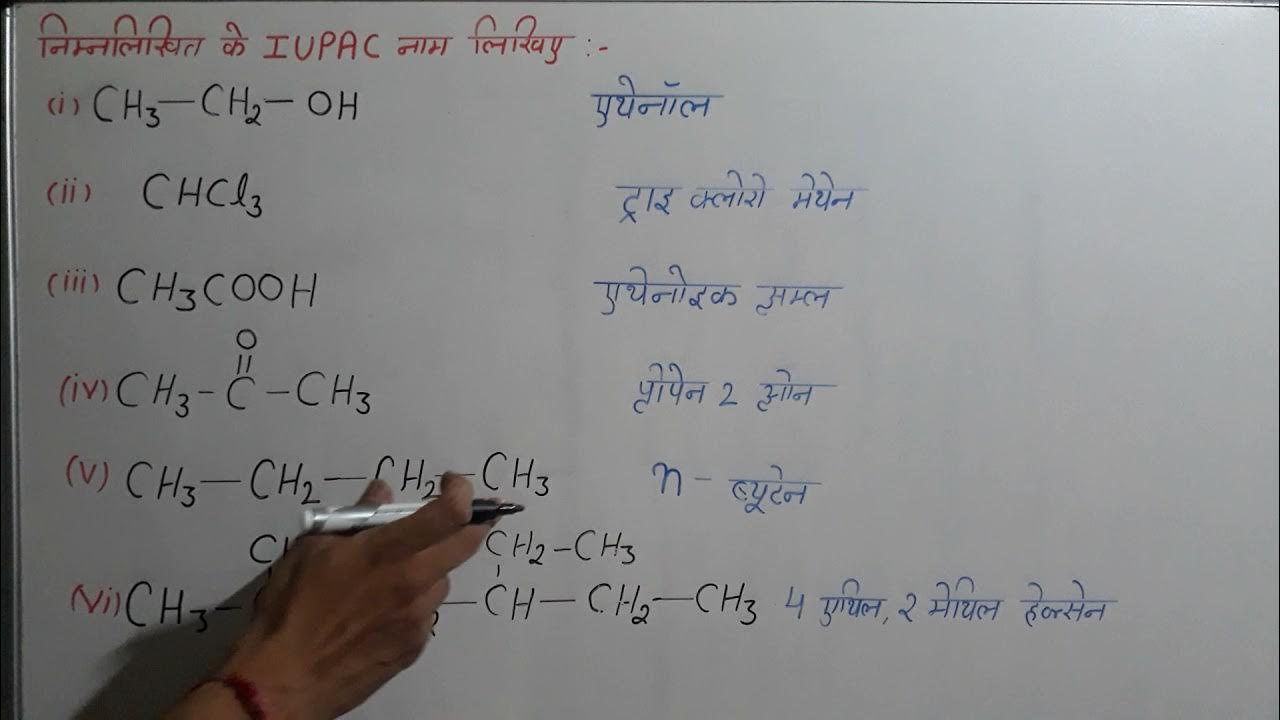 निम्नलिखित के IUPAC नाम लिखिए :-
(i) CH3—CH2—OH एथेनॉल
(ii) CHCl3 ट्राइ क्लोरो मेथेन
(iii) CH3COOH एथेनोइक अम्ल
O
||
(iv) CH3-C-CH3 प्रोपेन 2 ओन
(v) CH3—CH2—CH2—CH3 n-ब्यूटेन
CH2-CH3
(vi) CH3- —CH—CH2—CH3 4 एथिल, 2 मेथिल हेक्सेन